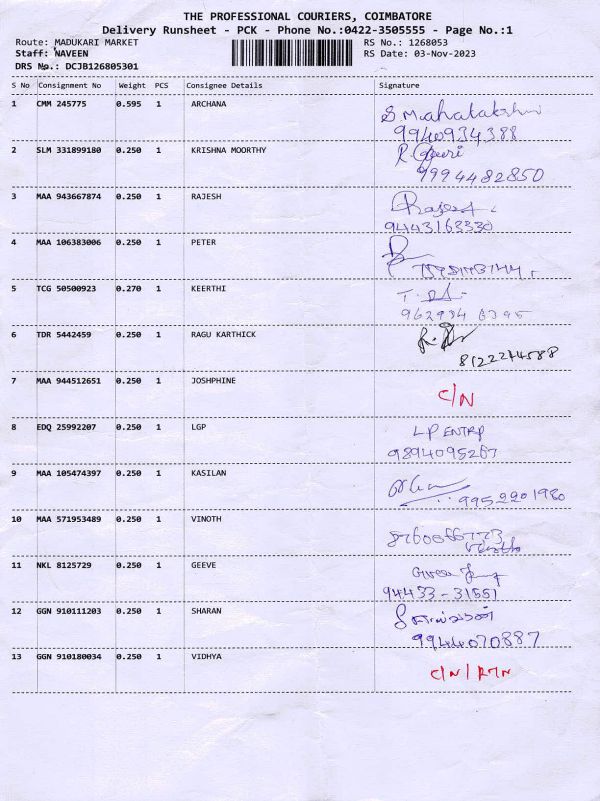 THE PROFESSIONAL COURIERS, COIMBATORE
Delivery Runsheet - PCK - Phone No.:0422-3505555 - Page No.:1
Route: MADUKARI MARKET RS No.: 1268053
Staff: NAVEEN RS Date: 03-Nov-2023
DRS No.: DCJB126805301
S No Consignment No Weight PCS Consignee Details Signature
1 CMM 245775 0.595 1 ARCHANA S Mahalakshmi
9940934388
2 SLM 331899180 0.250 1 KRISHNA MOORTHY R. Gowri
9994482850
3 MAA 943667874 0.250 1 RAJESH Rajesh
9443163330
4 MAA 106383006 0.250 1 PETER
5 TCG 50500923 0.270 1 KEERTHI
962934 6395
6 TDR 5442459 0.250 1 RAGU KARTHICK
8122274588
7 MAA 944512651 0.250 1 JOSHPHINE C/N
8 EDQ 25992207 0.250 1 LGP LP ENTRP
9894095267
9 MAA 105474397 0.250 1 KASILAN
9952201980
10 MAA 571953489 0.250 1 VINOTH
11 NKL 8125729 0.250 1 GEEVE
94433-31551
12 GGN 910111203 0.250 1 SHARAN
9944070887
13 GGN 910180034 0.250 1 VIDHYA C/N/RTN